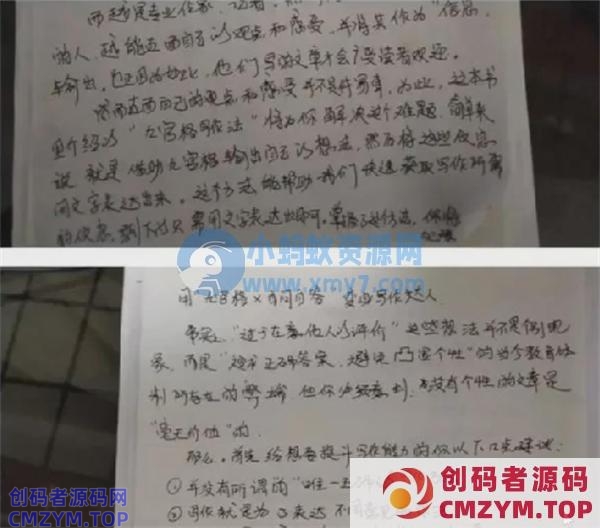 而越是专业作家、记者
的人，越能直面自己的观点和感受，并将其作为“信息”
与输出，也正因为如此，他们写的文章才会广受读者欢迎。
然而直面自己的观点和感受并不是件易事，为此，这本书
里介绍的“九宫格写作法”将为你解决这个难题。简单来
说，就是借助九宫格输出自己的想法，然后将这些信息
用文字表达出来。这个方法能帮助我们快速获取写作所需
的信息，剩下的只需用文字表达出即可。掌握了这个方法，你将
小蚂蚁资源网
www.xmy7.com
用九宫格×自问自答 变身写作达人
事实上，“过于在意他人的评价”这些想法并不是个别现
象，而是“追求正确答案，避免凸显个性”的当今教育体
制所存在的弊端。但你必须意识到，没有个性的文章是
“毫无价值”的。
那么，首先给想要提升写作能力的你以下几点建议：
①并没有所谓的“唯一正确
②写作就是为了表达不同意见
创码者源码网
CMZYM.TOP
创码者资源网
CMZYM.TOP